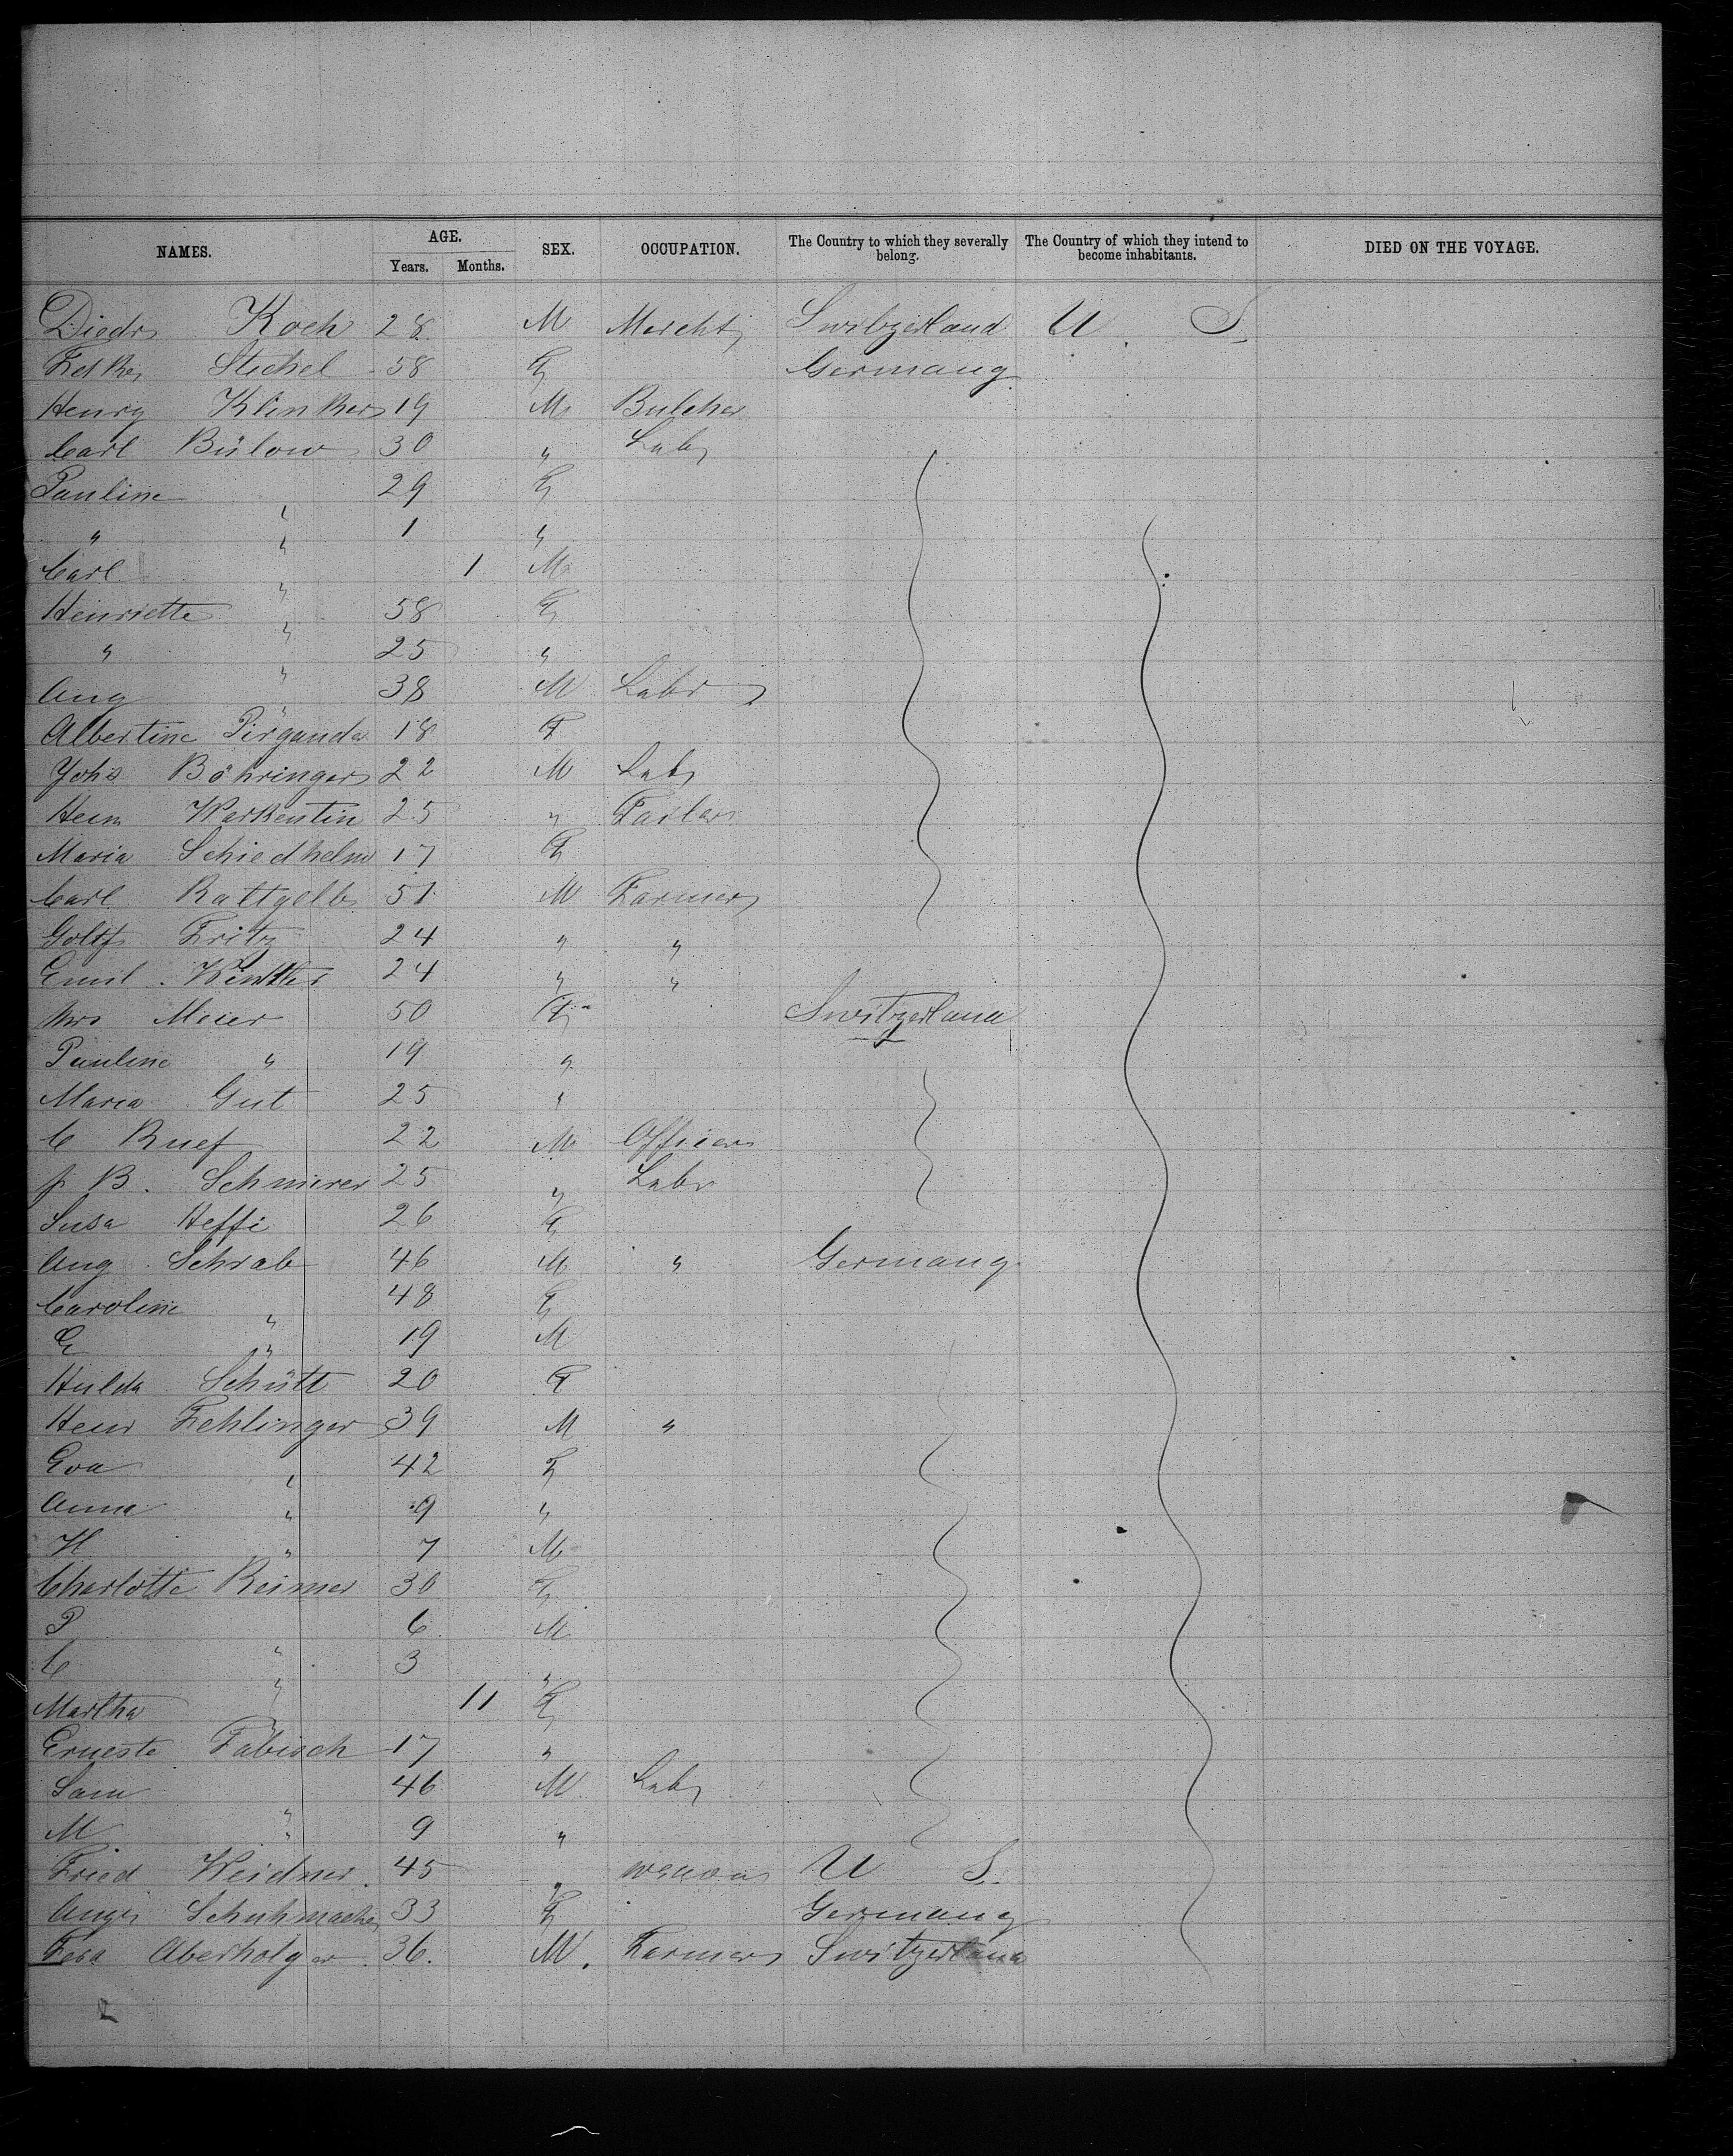 NAMES. AGE. SEX. OCCUPATION. The Country to which they severally belong. The Country of which they intend to become inhabitants. DIED ON THE VOYAGE.
Years. Months.
Diedr Koch 28 M Mercht Switzerland U. S.
Stickel 58 F Germany
Henry Klinker 19 M Butcher
Carl Bülow 30 " Labr
Pauline " 29 F
" " 1 "
Carl " 1 M
Henriette " 58 F
" " 25 "
Aug " 38 M Labr
Albertine Pirganda 18 F
Johs Böhringer 22 M Labr
Hein Warkentin 25 " Tailor
Maria Schiedhelm 17 F
Carl Rattgelb 51 M Farmer
Gottf Fritz 24 " "
Emil Winkler 24 " "
Mrs Meier 50 F Switzerland
Pauline " 19 "
Maria Gut 25 "
C Ruef 22 M Officer
J. B. Schmirer 25 " Labr
Susa Heffi 26 F
Aug Schrab 46 M " Germany
Caroline " 48 F
E " 19 M
Hulda Schütt 20 F
Heinr Fehlinger 39 M "
Eva " 42 F
Anna " 9 "
H " 7 M
Charlotte Reimer 30 F
P " 6 M
C " 3 "
Martha " 11 F
Erneste Fabisch 17 "
Sam " 46 M Labr
M " 9 "
Fried Weidner 45 " U S.
Schuhmacher 33 F Germany
Aberholger 36. M. Farmer Switzerland